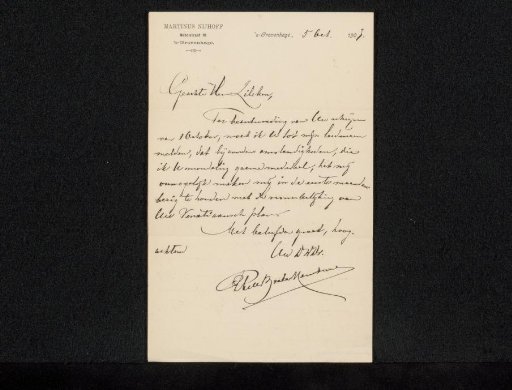 MARTINUS NIJHOFF
's-Gravenhage.
's-Gravenhage, 5 Oct. 190
Geachte Heer Zilcken,
Ter beantwoording van Uw schrijven
van 1 October, moet ik U tot mijn leedwezen
melden, dat bijzondere omstandigheden, die
ik U mondeling gaarne mededeel, het mij
onmogelijk maken mij in de eerste maanden
bezig te houden met de verwezenlijking van
Uw plan.
Met beleefde groet, hoog-
achtend
Uw